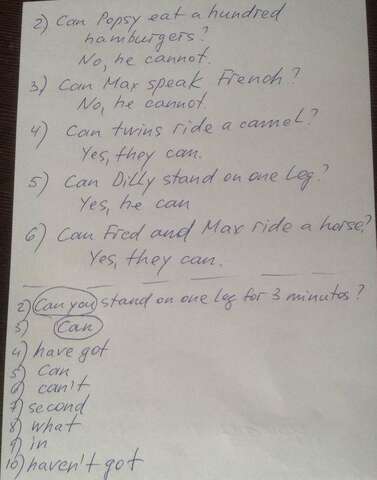 2) Can Popsy eat a hundred
hamburgers?
No, he cannot.
3) Can Max speak French?
No, he cannot.
4) Can twins ride a camel?
Yes, they can.
5) Can Dilly stand on one leg?
Yes, he can
6) Can Fred and Max ride a horse?
Yes, they can.
2) Can you stand on one leg for 3 minutos?
3) Can
4) have got
5) can
6) can't
7) second
8) what
9) in
10) haven't got